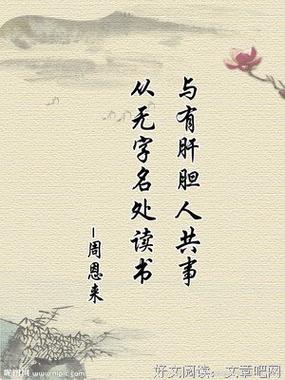 与有肝胆人共事
从无字名处读书
-周恩来
昵图网 www.nipic.com
好文阅读：文章吧网